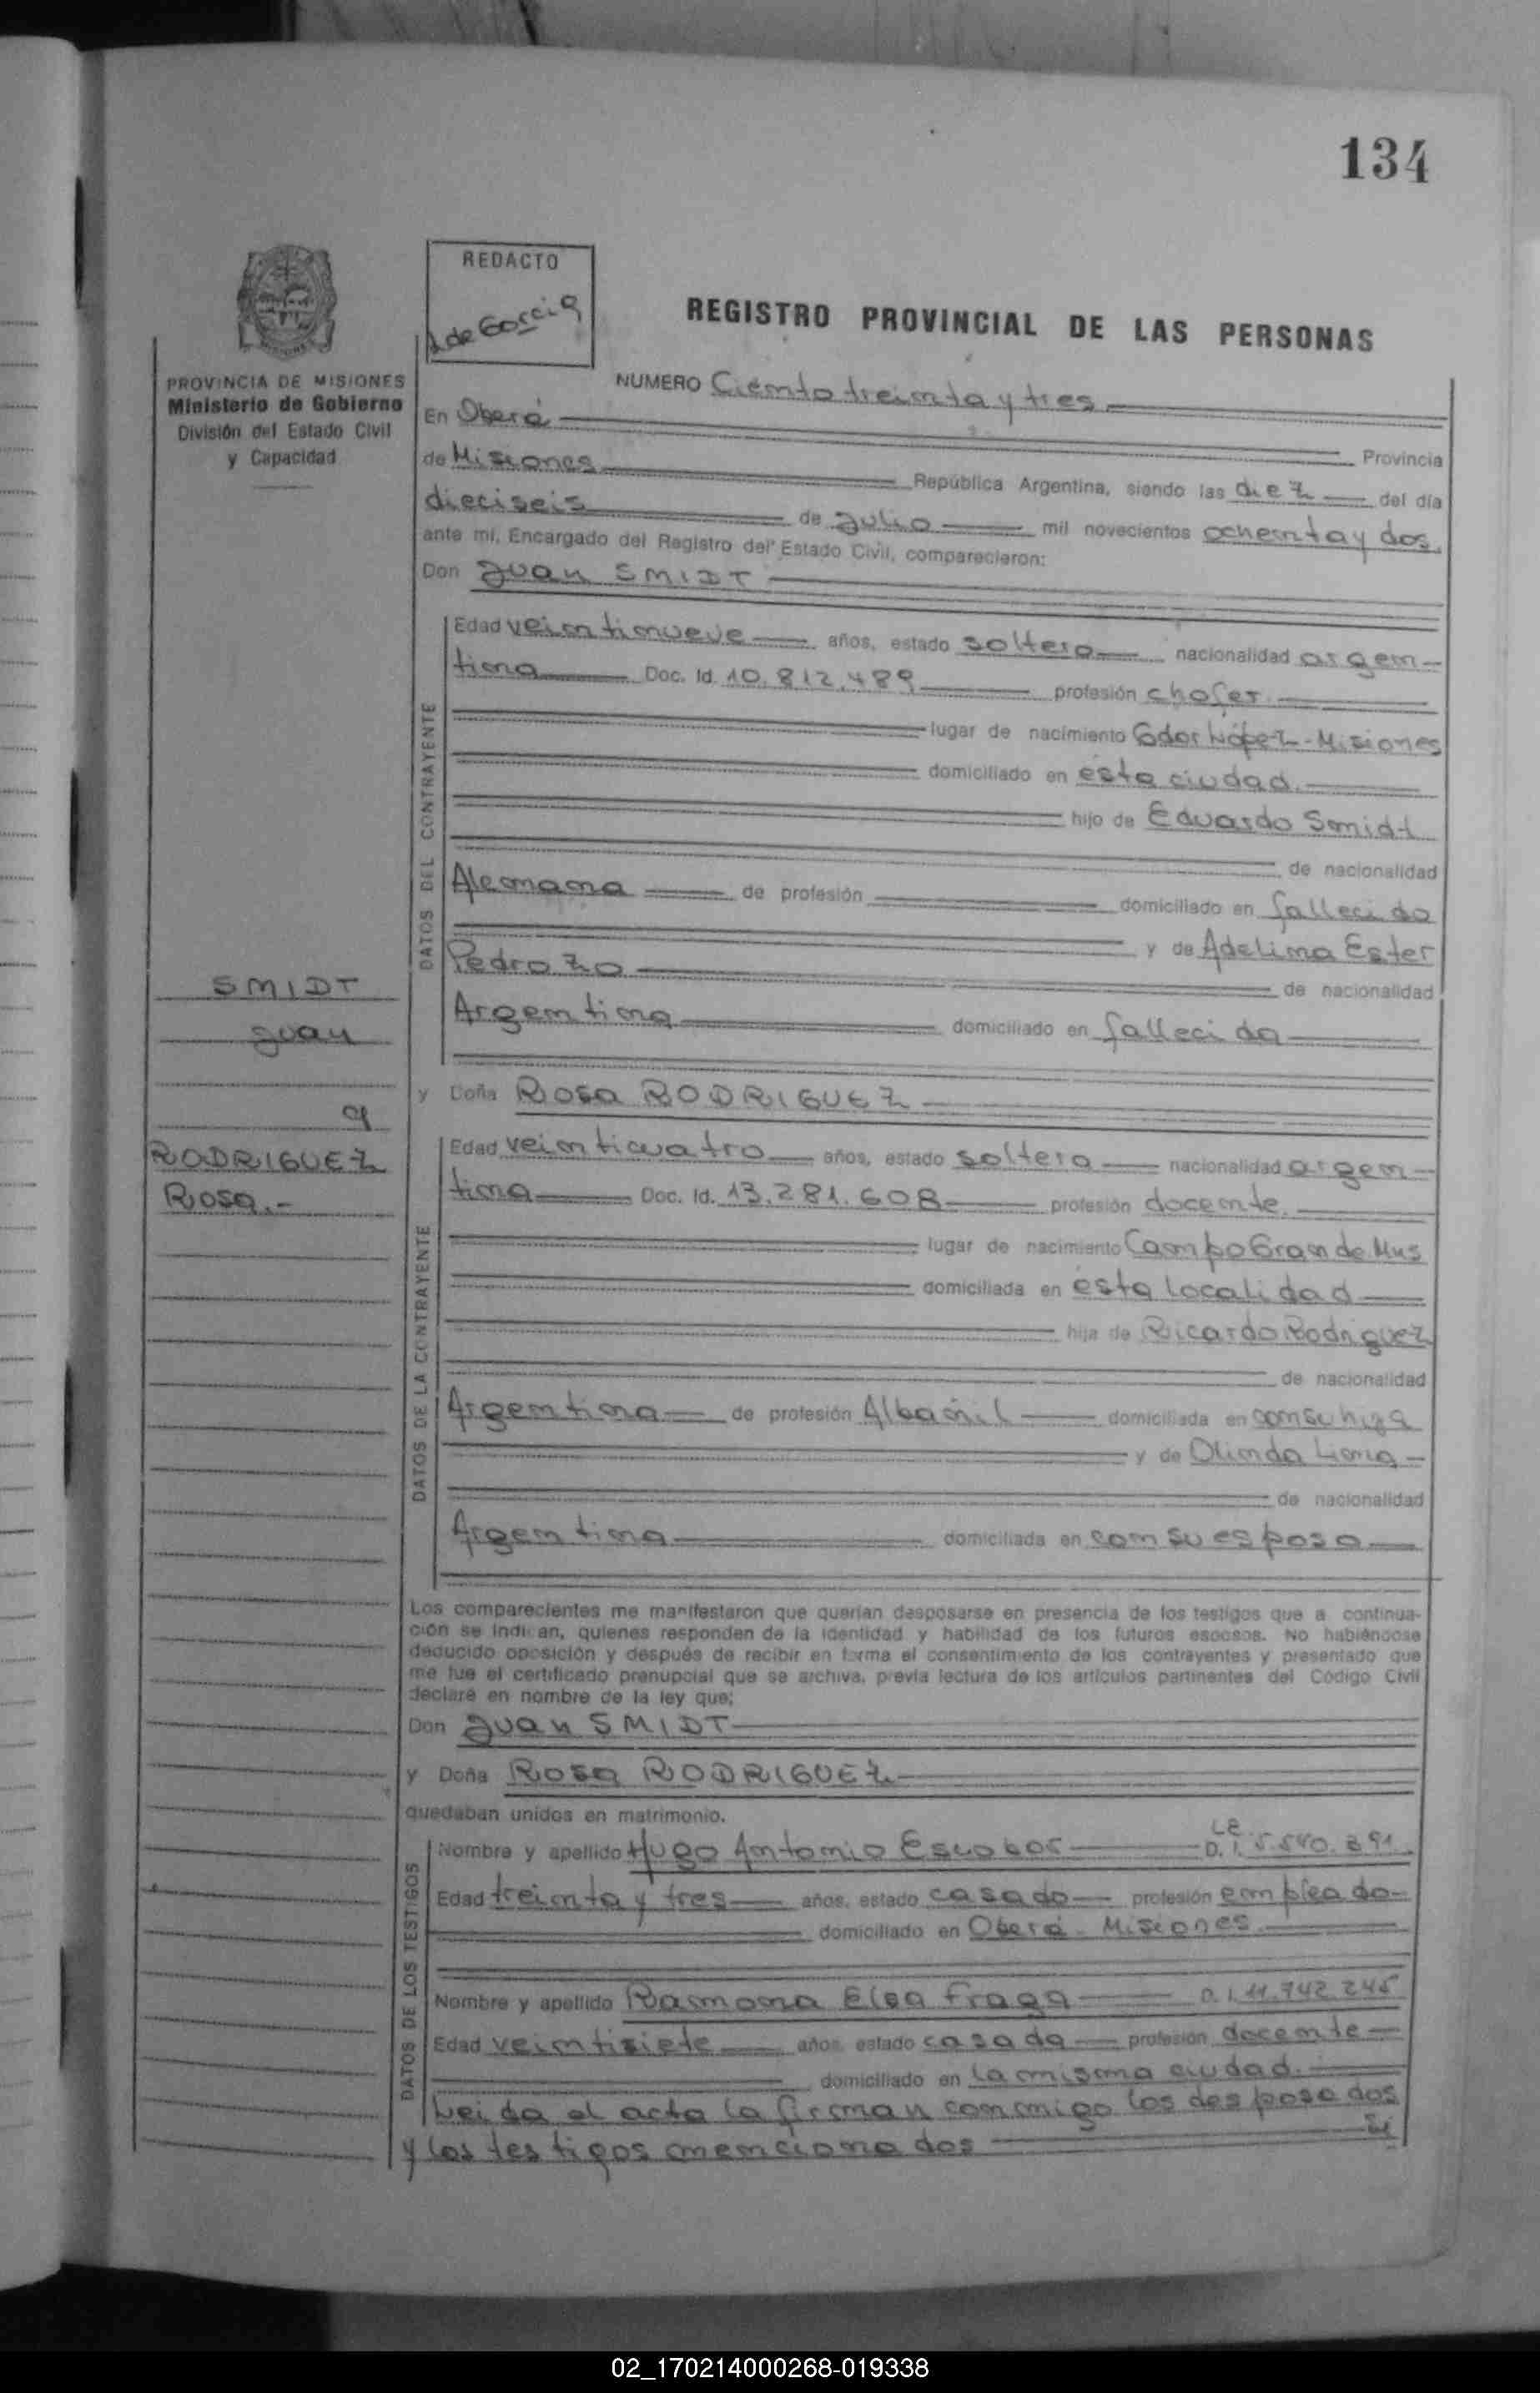 134
REDACTO
de Garcia
REGISTRO PROVINCIAL DE LAS PERSONAS
PROVINCIA DE MISIONES
Ministerio de Gobierno
División del Estado Civil
y Capacidad
NUMERO Ciento treinta y tres
En Oberá
Provincia
de Misiones República Argentina, siendo las diez del día
dieciseis de Julio mil novecientos ochenta y dos.
ante mí, Encargado del Registro del Estado Civil, comparecieron:
Don Juan SMIDT
DATOS DEL CONTRAYENTE
Edad veintinueve años, estado soltero nacionalidad argen-
tina Doc. Id. 10.812.489 profesión chofer.
lugar de nacimiento Gdor López - Misiones
domiciliado en esta ciudad.
hijo de Eduardo Smidt
de nacionalidad
Alemana de profesión domiciliado en fallecido
y de Adelina Ester
Pedrozo
de nacionalidad
Argentina domiciliado en fallecida
SMIDT
Juan
y
RODRIGUEZ
Rosa.-
y Doña Rosa RODRIGUEZ
DATOS DE LA CONTRAYENTE
Edad veinticuatro años, estado soltera nacionalidad argen-
tina Doc. Id. 13.281.608 profesión docente.
lugar de nacimiento Campo Grande Mns
domiciliada en esta localidad
hija de Ricardo Rodriguez
de nacionalidad
Argentina de profesión Albañil domiciliada en con su hija
y de Olinda Lima
de nacionalidad
Argentina domiciliada en con su esposo
Los comparecientes me manifestaron que querían desposarse en presencia de los testigos que a continua-
ción se indican, quienes responden de la identidad y habilidad de los futuros esposos. No habiéndose
deducido oposición y después de recibir en forma el consentimiento de los contrayentes y presentado que
me fue el certificado prenupcial que se archiva, previa lectura de los artículos partinentes del Código Civil
declaré en nombre de la ley que;
Don Juan SMIDT
y Doña Rosa RODRIGUEZ
quedaban unidos en matrimonio.
DATOS DE LOS TESTIGOS
Nombre y apellido Hugo Antonio Escobar LE D. I. 5.540.891
Edad treinta y tres años, estado casado profesión empleado
domiciliado en Oberá - Misiones
Nombre y apellido Ramona Elsa Fraga D. I. 11.742.245
Edad veintisiete años, estado casada profesión docente
domiciliado en la misma ciudad.
Leida el acta la firman conmigo los desposados
y los testigos mencionados
02_170214000268-019338